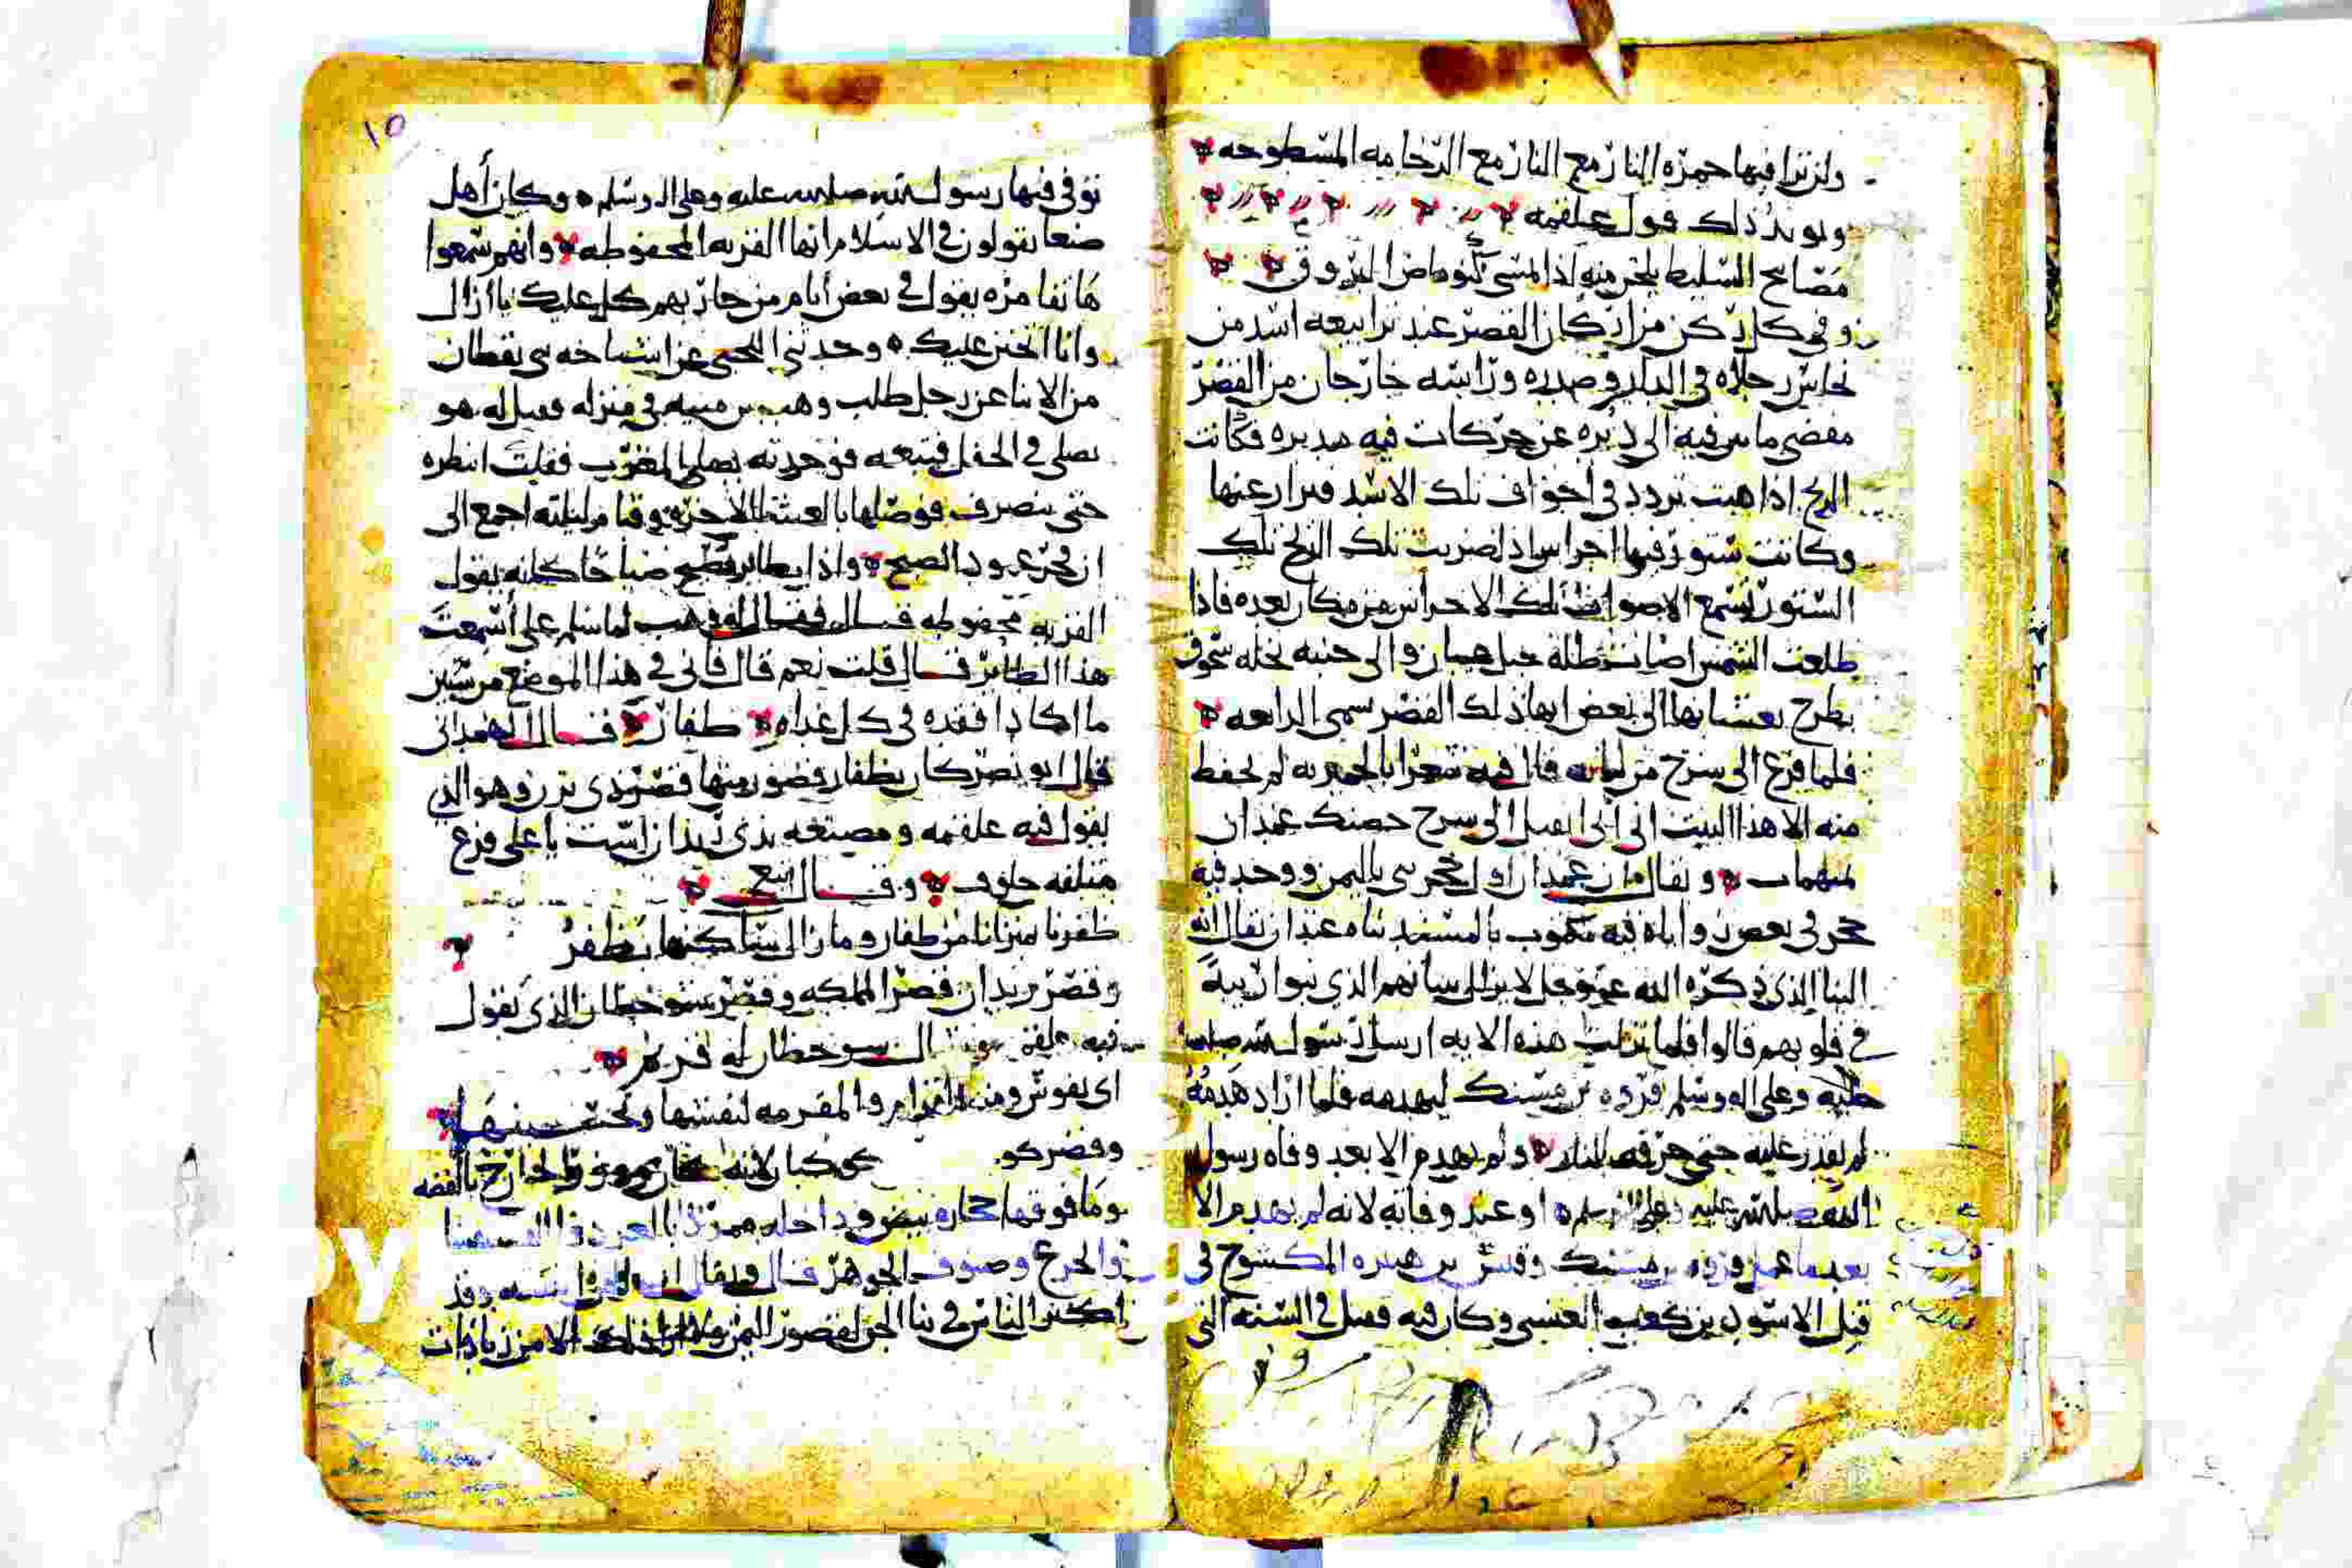 ولن ترا فيها حمزه النار مع النار مع الرخامه المسطوحه
ويويد ذلك قول علقمه
مصابح السليط يلحن منه اذا امسى كتوماض البروق
وفي كل ركن من اركان القصر عند ترابيعه اسد من
نحاس رجلاه في الدار وصدره وراسه خارجان من القصر
مفضى ما بين فيه الى دبره عن حركات فيه مدبره فكانت
الريح اذا هبت تردد في اجواف تلك الاسد فيزار عنها
وكانت ستور فيها اجراس اذا ضربت تلك الريح تلك
الستور تسمع الاصوات تلك الاجراس من مكان بعده فاذا
طلعت الشمس اصابت ظله جبل عيبان والى جنبه نخله سحوق
يطرح بعسبانها الى بعض ابهاذلك القصر سمى الدامعه
فلما فرغ الى سرح من بنيانه قال فيه شعرا بالحميريه لم يحفظ
منه الا هذا البيت انى انى القيل الى سرح حصنك غمدان
بمبهمات ويقال ان غمدان اول حجر بنى باليمن ووجد فيه
حجر في بعض زواياه فيه مكتوب بالمسند بناه غمدان يقال انه
البنا الذي ذكره الله عز وجل لا يزال بنيانهم الذي بنوا ريبة
في قلوبهم قالوا فلما نزلت هذه الايه ارسل رسول الله صلى الله
عليه وعلى اله وسلم فروه بن مسيك ليهدمه فلما اراد هدمه
لم يقدر عليه حتى حرقه بالنار ولم يهدم الا بعد وفاه رسول
الله صلى الله عليه وعلى اله وسلم او عند وفاته لانه لم يهدم الا
بعدما عمل فروه بن مسيك وقيس بن هبيره المكشوح في
قتل الاسود بن كعب العنسي وكان فيه قتل في السنه التى
١٥
توفى فيها رسول الله صلى الله عليه وعلى اله وسلم وكان أهل
صنعا يقولون في الاسلام انها القريه المحفوظه وانهم سمعوا
هاتفا مره يقول في بعض أيام من حاربهم كل عليك يا ازال
وانا اتحنن عليك وحدثني اللحجي عن اشياخه بنى يقطان
من الابنا عن رجل طلب وهب بن منبه في منزله فقيل له هو
يصلى في الحقل فتبعه فوجدته يصلي المغرب فقلت انتظره
حتى ينصرف فوصلها بالعشا الاخره وقام ليلته اجمع الى
ان فجر عمود الصبح واذا بطاير يصيح صياحا كانه يقول
القريه محفوظه قال فقال له وهب لما سلم على أسمعت
هذا الطاير قال قلت نعم قال فانى في هذا الموضع من سنين
ما اكاد افقده في كل غداه ظفار قال الهمدانى
قال ابو نصر كان بظفار قصور منها قصر ذى يزن وهو الذي
يقول فيه علقمه ومصنعه بذى ريدان است باعلى فرع
متلفه حلوف وقال تبع
ظفرنا بمنزلنا من ظفار وما زال ساكنها يظفر
وقصر ريدان قصر المملكه وقصر شوحطان الذي يقول
فيه علقمه شوحطان له قريم
اى نقوش ومنه القرام والمقرمه لنفسها وتحت
وقصر كوكبان لانه كان مؤزر الخارج بالفضه
وما فوقها حجاره بيض وداخله ممرد بالعرعر والفسيفسا
والجزع وصنوف الجوهر قال ويقال وقد
اكثر الناس في بنا الجن لقصور اليمن الامر زيادات